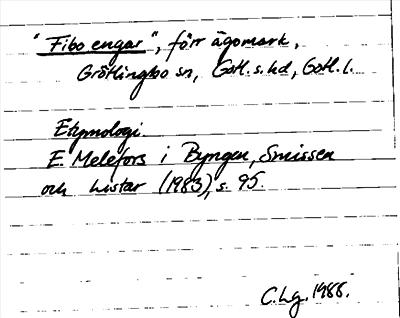 "Fibo engar", förr ägomark,
Grötlingbo sn, Gotl. s. hd, Gotl. l.
Etymologi
E. Melefors i Byngen, Smissen
och Listar (1983), s. 95.
C. Lg. 1988.